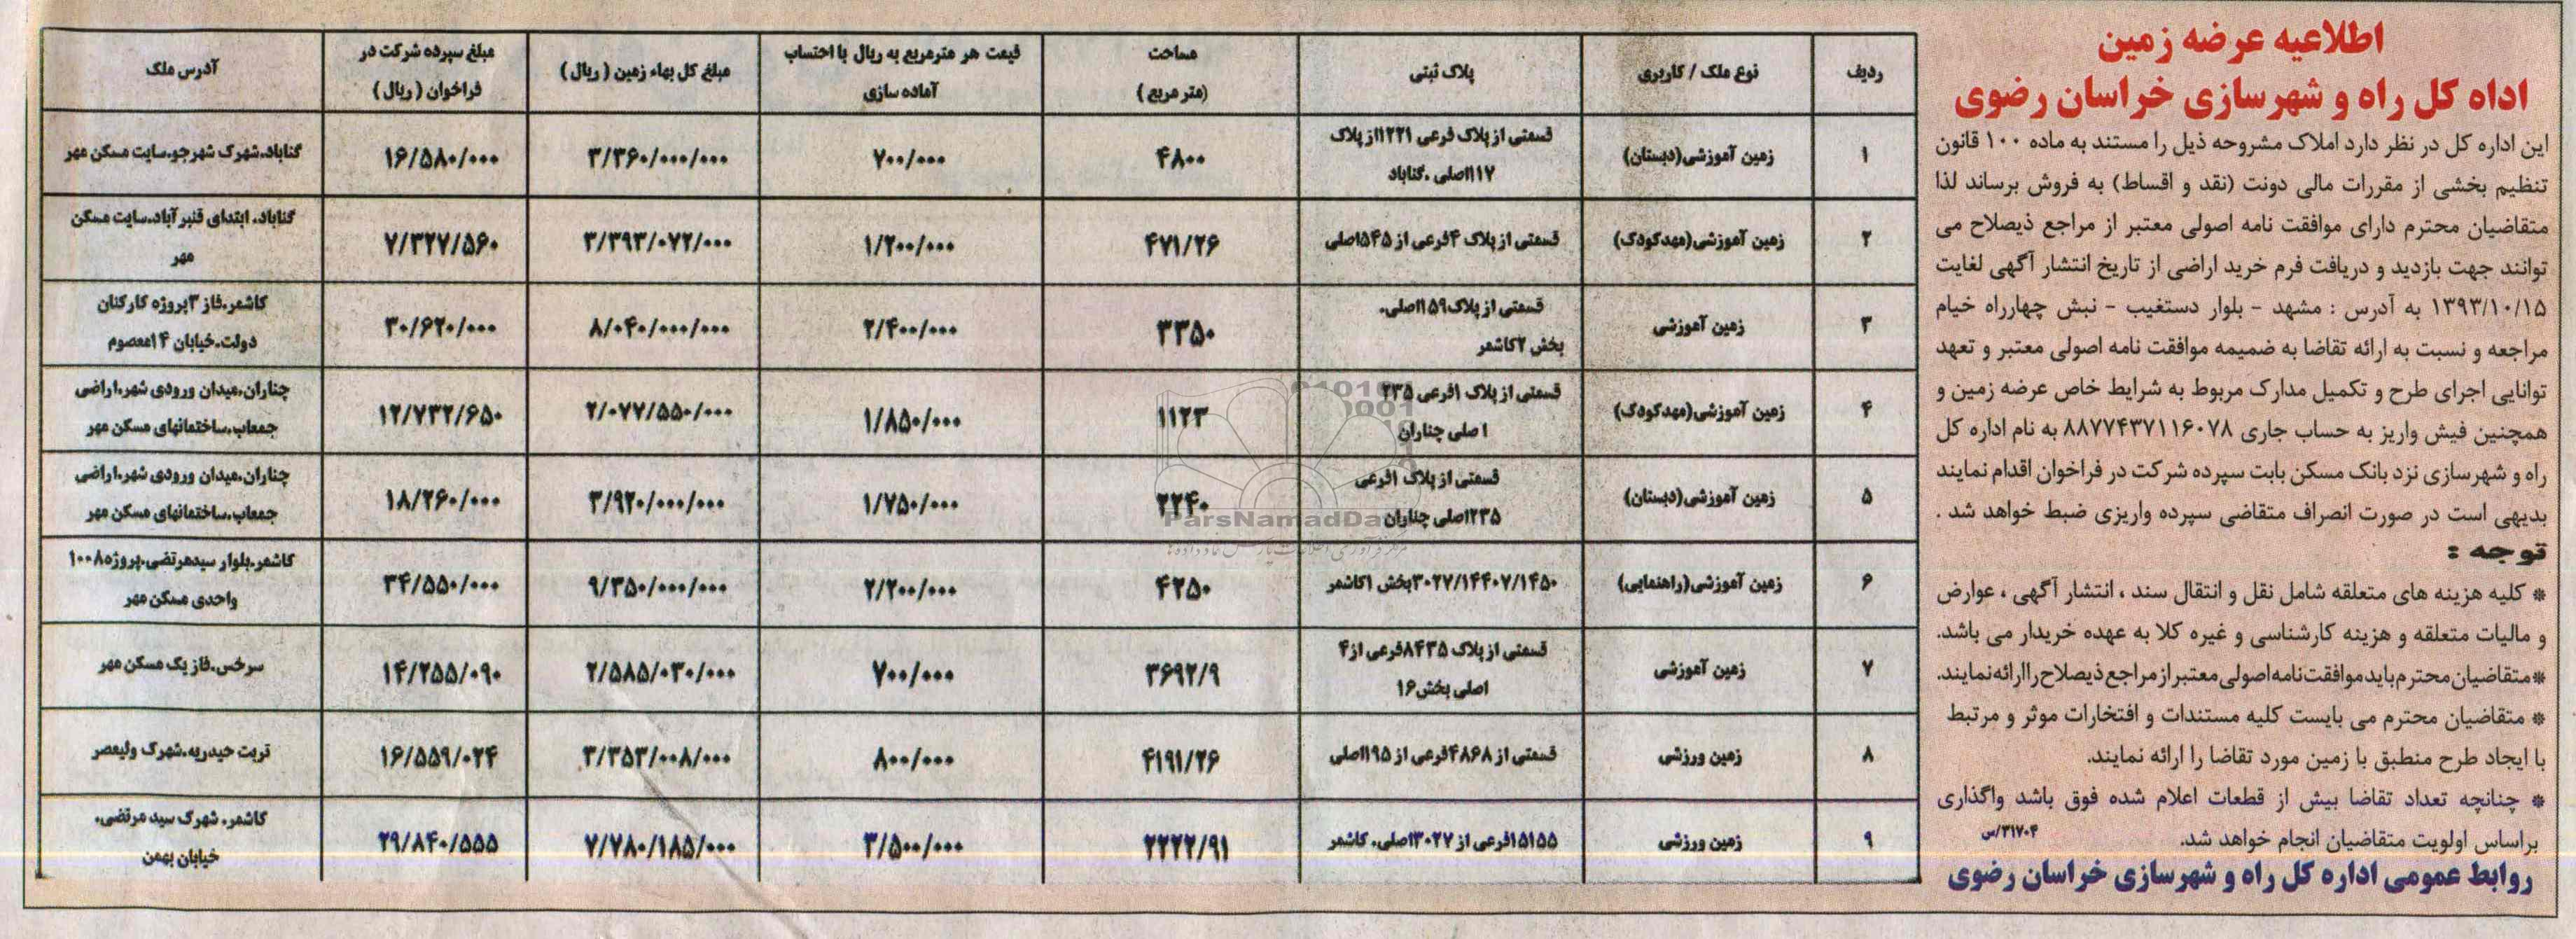 اطلاعیه عرضه زمین
اداه کل راه و شهرسازی خراسان رضوی
این اداره کل در نظر دارد املاک مشروحه ذیل را مستند به ماده ۱۰۰ قانون
تنظیم بخشی از مقررات مالی دونت (نقد و اقساط) به فروش برساند لذا
متقاضیان محترم دارای موافقت نامه اصولی معتبر از مراجع ذیصلاح می
توانند جهت بازدید و دریافت فرم خرید اراضی از تاریخ انتشار آگهی لغایت
۱۳۹۳/۱۰/۱۵ به آدرس : مشهد - بلوار دستغیب - نبش چهارراه خیام
مراجعه و نسبت به ارائه تقاضا به ضمیمه موافقت نامه اصولی معتبر و تعهد
توانایی اجرای طرح و تکمیل مدارک مربوط به شرایط خاص عرضه زمین و
همچنین فیش واریز به حساب جاری ۸۸۷۷۴۳۷۱۱۶۰۷۸ به نام اداره کل
راه و شهرسازی نزد بانک مسکن بابت سپرده شرکت در فراخوان اقدام نمایند
بدیهی است در صورت انصراف متقاضی سپرده واریزی ضبط خواهد شد .
توجه :
* کلیه هزینه های متعلقه شامل نقل و انتقال سند ، انتشار آگهی ، عوارض
و مالیات متعلقه و هزینه کارشناسی و غیره کلا به عهده خریدار می باشد.
* متقاضیان محترم باید موافقت نامه اصولی معتبر از مراجع ذیصلاح را ارائه نمایند.
* متقاضیان محترم می بایست کلیه مستندات و افتخارات موثر و مرتبط
با ایجاد طرح منطبق با زمین مورد تقاضا را ارائه نمایند.
* چنانچه تعداد تقاضا بیش از قطعات اعلام شده فوق باشد واگذاری
براساس اولویت متقاضیان انجام خواهد شد. ۳۱۷۰۴/س
روابط عمومی اداره کل راه و شهرسازی خراسان رضوی
ردیف نوع ملک / کاربری پلاک ثبتی مساحت (متر مربع) قیمت هر مترمربع به ریال با احتساب آماده سازی مبلغ کل بهاء زمین (ریال) مبلغ سپرده شرکت در فراخوان (ریال) آدرس ملک
۱ زمین آموزشی(دبستان) قسمتی از پلاک فرعی ۱۲۲۱از پلاک ۱۱۷اصلی .گناباد ۴۸۰۰ ۷۰۰/۰۰۰ ۳/۳۶۰/۰۰۰/۰۰۰ ۱۶/۵۸۰/۰۰۰ گناباد.شهرک شهرجو.سایت مسکن مهر
۲ زمین آموزشی(مهدکودک) قسمتی از پلاک ۴فرعی از ۵۴۵اصلی ۴۷۱/۲۶ ۱/۲۰۰/۰۰۰ ۳/۳۹۳/۰۷۲/۰۰۰ ۷/۳۲۷/۵۶۰ گناباد. ابتدای قنبرآباد.سایت مسکن مهر
۳ زمین آموزشی قسمتی از پلاک۱۵۹اصلی. بخش ۲کاشمر ۳۳۵۰ ۲/۴۰۰/۰۰۰ ۸/۰۴۰/۰۰۰/۰۰۰ ۳۰/۶۲۰/۰۰۰ کاشمر.فاز ۳پروژه کارکنان دولت.خیابان ۱۴معصوم
۴ زمین آموزشی(مهدکودک) قسمتی از پلاک ۱فرعی ۲۳۵ اصلی چناران ۱۱۲۳ ۱/۸۵۰/۰۰۰ ۲/۰۷۷/۵۵۰/۰۰۰ ۱۲/۷۳۲/۶۵۰ چناران.میدان ورودی شهر.اراضی جمعاب.ساختمانهای مسکن مهر
۵ زمین آموزشی(دبستان) قسمتی از پلاک ۱فرعی ۲۳۵اصلی چناران ۲۲۴۰ ۱/۷۵۰/۰۰۰ ۳/۹۲۰/۰۰۰/۰۰۰ ۱۸/۲۶۰/۰۰۰ چناران.میدان ورودی شهر.اراضی جمعاب.ساختمانهای مسکن مهر
۶ زمین آموزشی(راهنمایی) ۳۰۲۷/۱۴۴۰۷/۱۴۵۰بخش ۱کاشمر ۴۲۵۰ ۲/۲۰۰/۰۰۰ ۹/۳۵۰/۰۰۰/۰۰۰ ۳۴/۵۵۰/۰۰۰ کاشمر.بلوار سیدمرتضی.پروژه۱۰۰۸ واحدی مسکن مهر
۷ زمین آموزشی قسمتی از پلاک ۸۴۳۵فرعی از۴ اصلی بخش۱۶ ۳۶۹۲/۹ ۷۰۰/۰۰۰ ۲/۵۸۵/۰۳۰/۰۰۰ ۱۴/۲۵۵/۰۹۰ سرخس.فاز یک مسکن مهر
۸ زمین ورزشی قسمتی از ۴۸۶۸فرعی از ۱۹۵اصلی ۴۱۹۱/۲۶ ۸۰۰/۰۰۰ ۳/۳۵۳/۰۰۸/۰۰۰ ۱۶/۵۵۹/۰۲۴ تربت حیدریه.شهرک ولیعصر
۹ زمین ورزشی ۱۵۱۵۵فرعی از ۳۰۲۷اصلی. کاشمر ۲۲۲۲/۹۱ ۳/۵۰۰/۰۰۰ ۷/۷۸۰/۱۸۵/۰۰۰ ۲۹/۸۴۰/۵۵۵ کاشمر. شهرک سید مرتضی. خیابان بهمن
ParsNamadDa